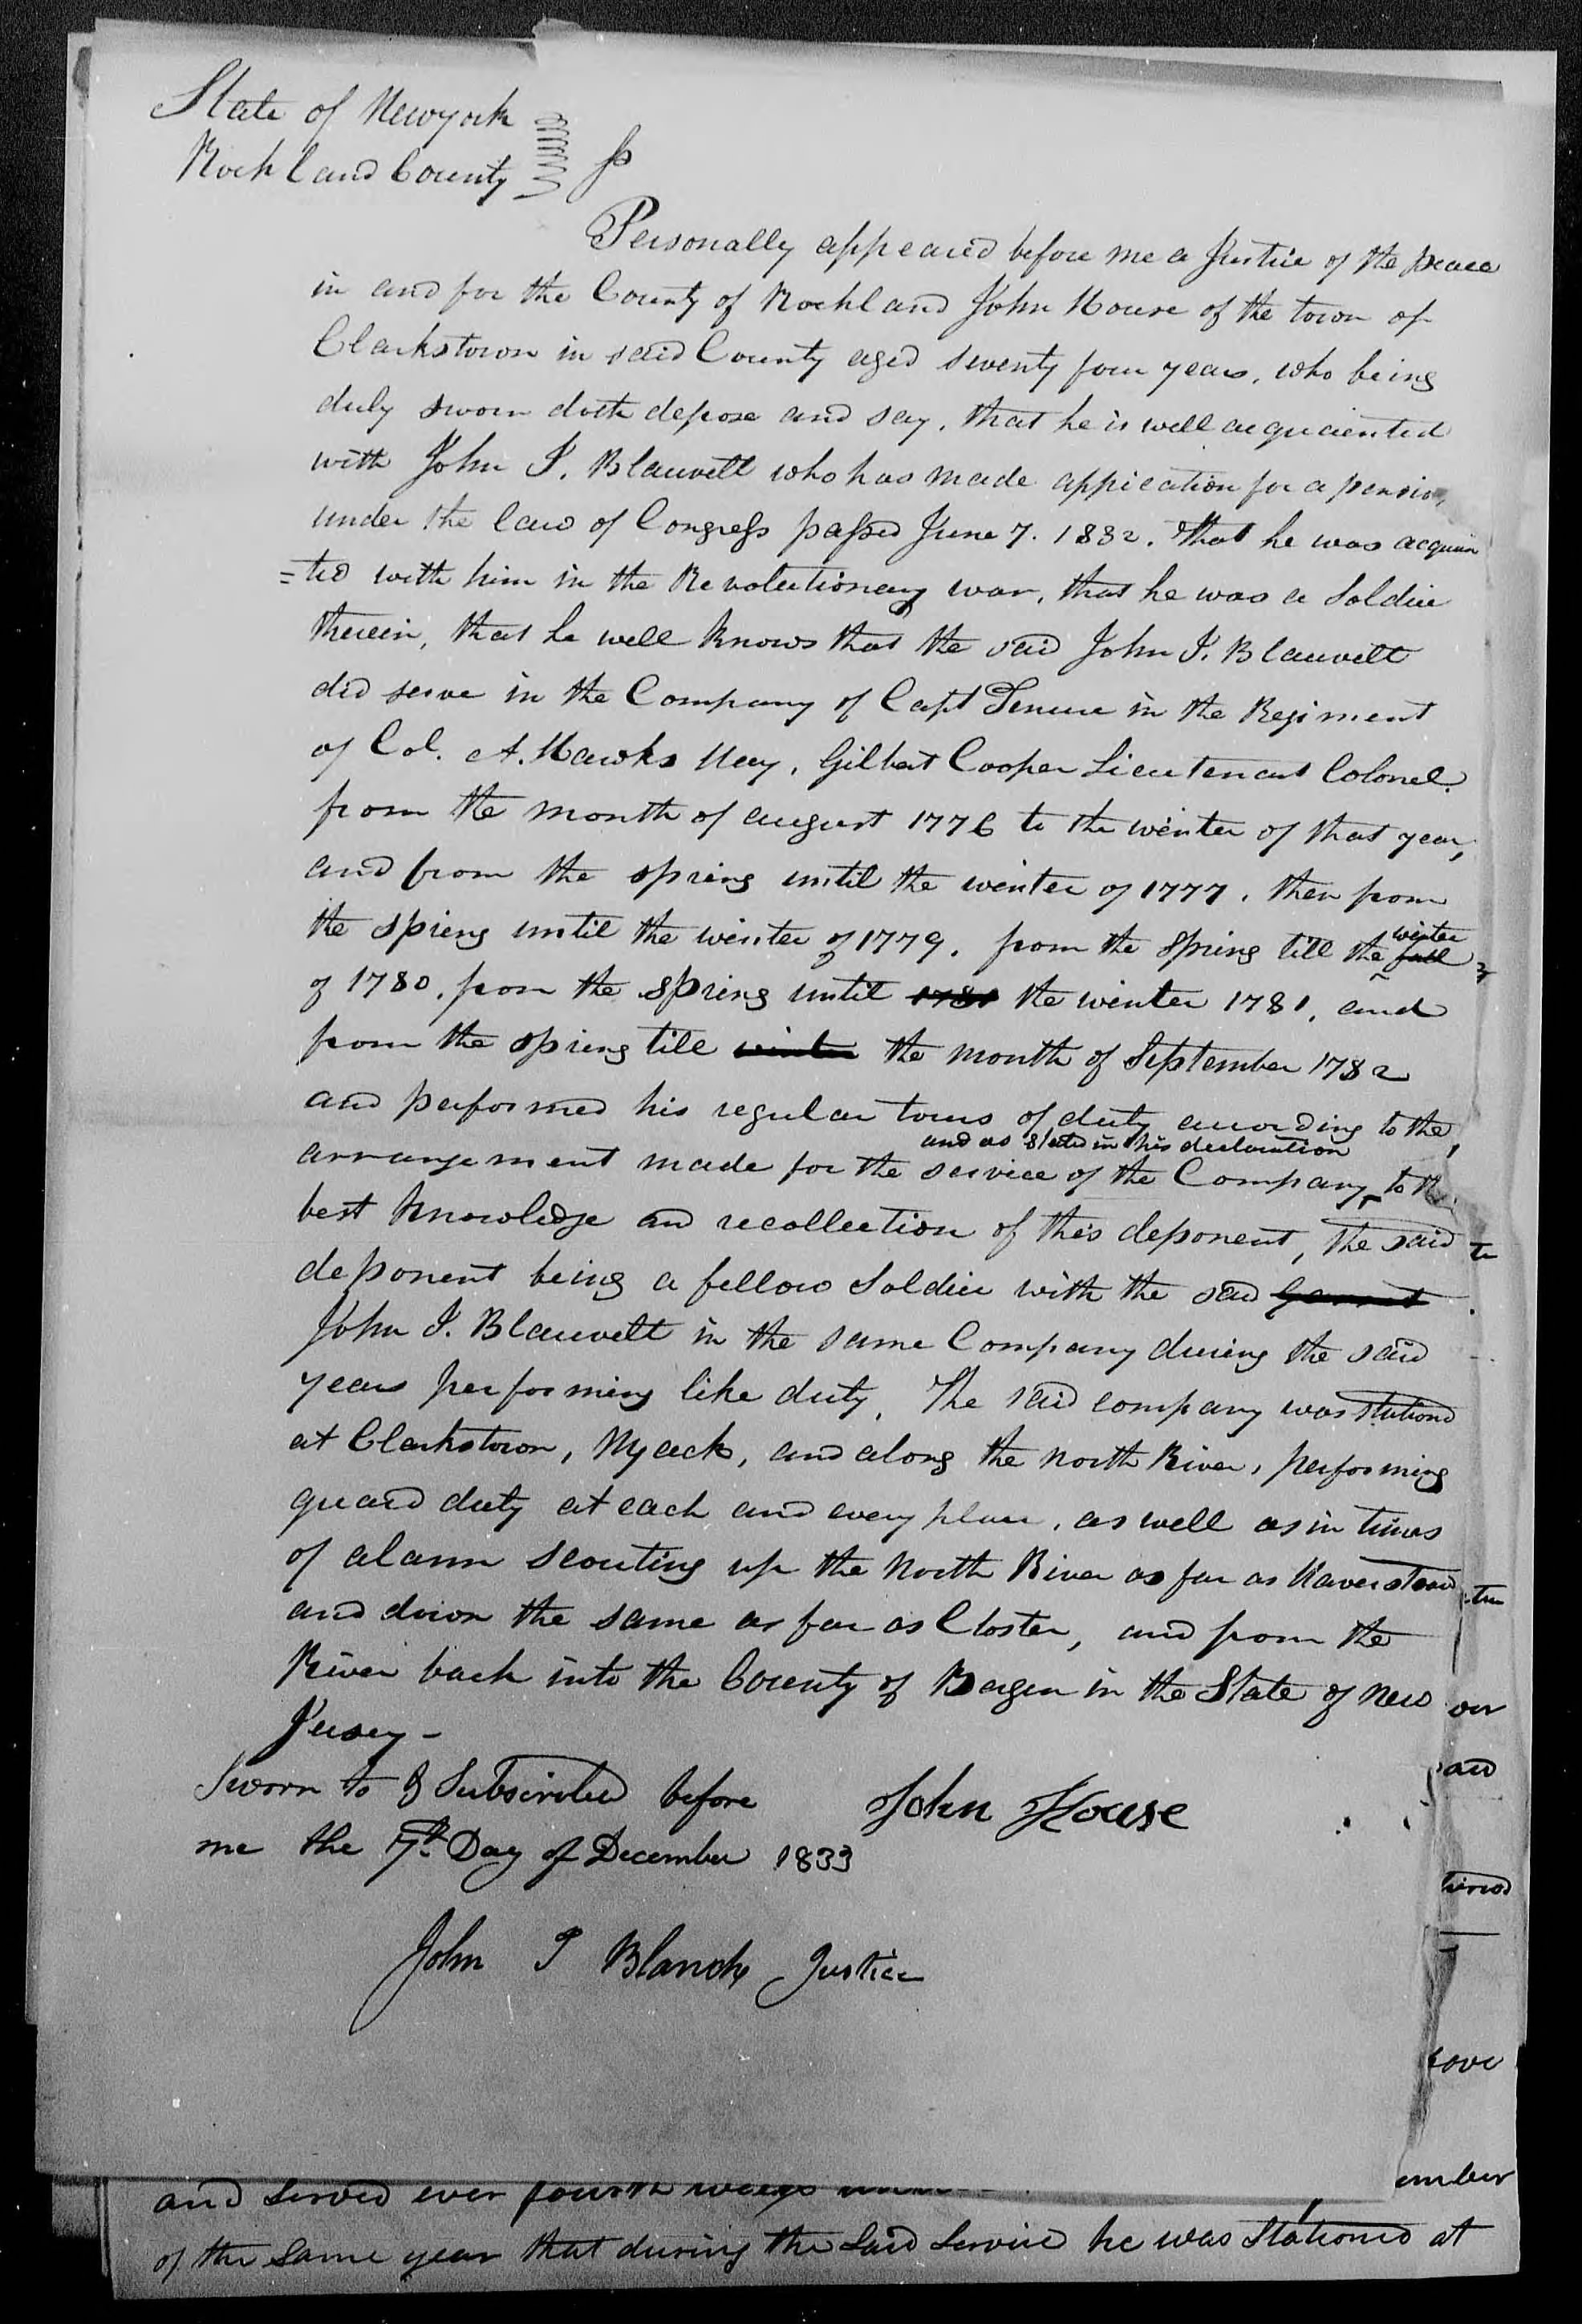 State of Newyork
Rockland County } ss
Personally appeared before me a Justice of the peace
in and for the County of Rockland John House of the town of
Clarkstown in said County aged seventy four years, who being
duly sworn doth depose and say, that he is well acquaiented
with John J. Blauvelt who has made appication for a pension
under the law of Congress passed June 7. 1832. that he was acquain
=ted with him in the Revolutionary war, that he was a Soldier
therein, that he well knows that the said John J. Blauvelt
did serve in the Company of Capt Tenure in the Regiment
of Col. A. Hawks Hay, Gilbert Cooper Lieutenant Colonel
from the month of august 1776 to the winter of that year,
and from the spring until the winter of 1777. then from
the spring until the winter of 1779. from the Spring till the fall winter
of 1780. from the spring until 1781 the winter 1781, and
from the spring till winter the month of September 1782
and performed his regular tours of duty according to the
and as stated in his declaration
arrangement made for the service of the Company to the
best knowledge and recollection of this deponent, the said
deponent being a fellow Soldier with the said Garret
John J. Blauvelt in the same Company during the said
years performing like duty, The said company was stationd
at Clarkstown, Nyack, and along the North River, performing
guard duty at each and every place, as well as in times
of alarm scouting up the North River as far as Haverstraw
and down the same as far as Closter, and from the
River back into the County of Bergen in the State of New
Jersey -
Sworn to & Subscribed before
me the 7th Day of December 1833
John House
John J Blanch Justice
and served ever fourth
ember
of the same year that during the said service he was stationed at